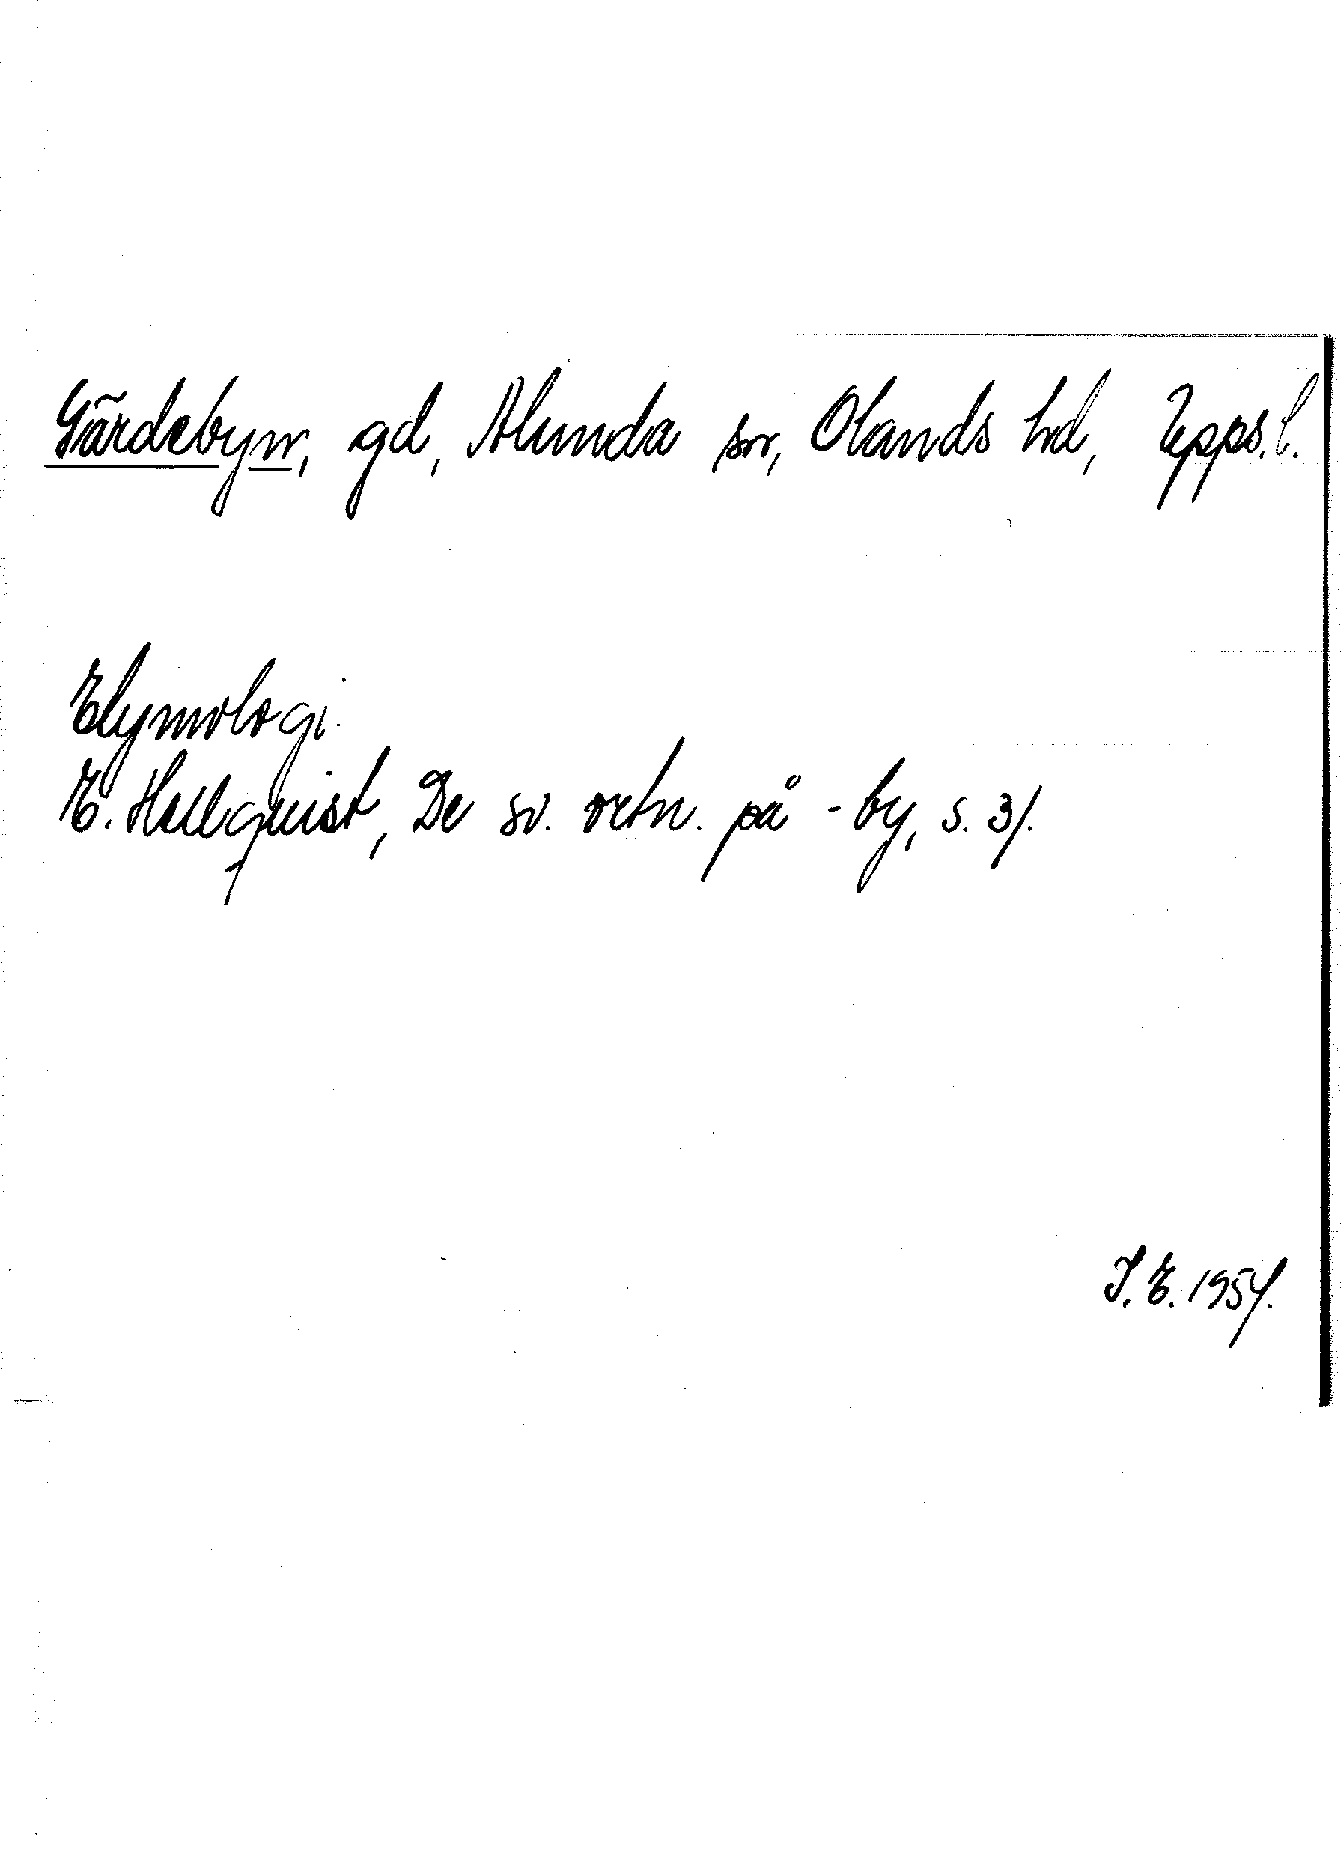 Gärdebyn, gd, Alunda sn, Olands hd, Upps. l.
Etymologi.
E. Hellquist, De sv. ortn. på -by, s. 31.
I. E. 1954.